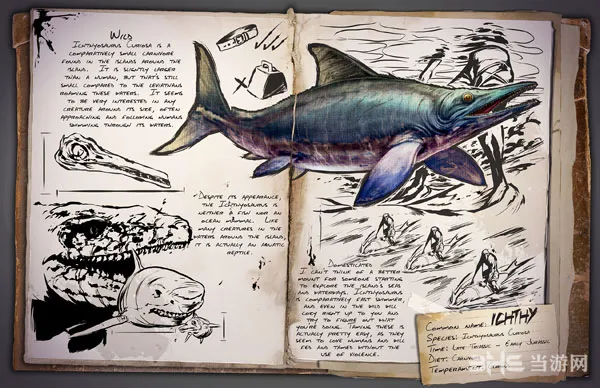 Wild
Ichthyosaurus Curiosa is a
comparatively small carnivore
found in the islands around the
island. It is slightly larger
than a human, but that's still
small compared to the leviathans
roaming these waters. It seems
to be very interested in any
creature around its size, often
approaching and following humans
swimming through its waters.
Despite its appearance,
the Ichthyosaurus is
neither a fish nor an
ocean mammal. Like
many creatures in the
waters around the island,
it is actually an aquatic
reptile.
Domesticated
I can't think of a better
mount for someone starting
to explore the island's seas
and waterways. Ichthyosaurus
is comparatively fast swimmer,
and even in the wild will
cozy right up to you and
try to figure out what
you're doing. Taming these is
actually pretty easy, as they
seem to love humans and will
feed and tamed without the
use of violence.
Common name: ICHTHY
Species: Ichthyosaurus Curiosa
Time: Late Triassic - Early Jurassic
Diet:
Temperament:
当游网